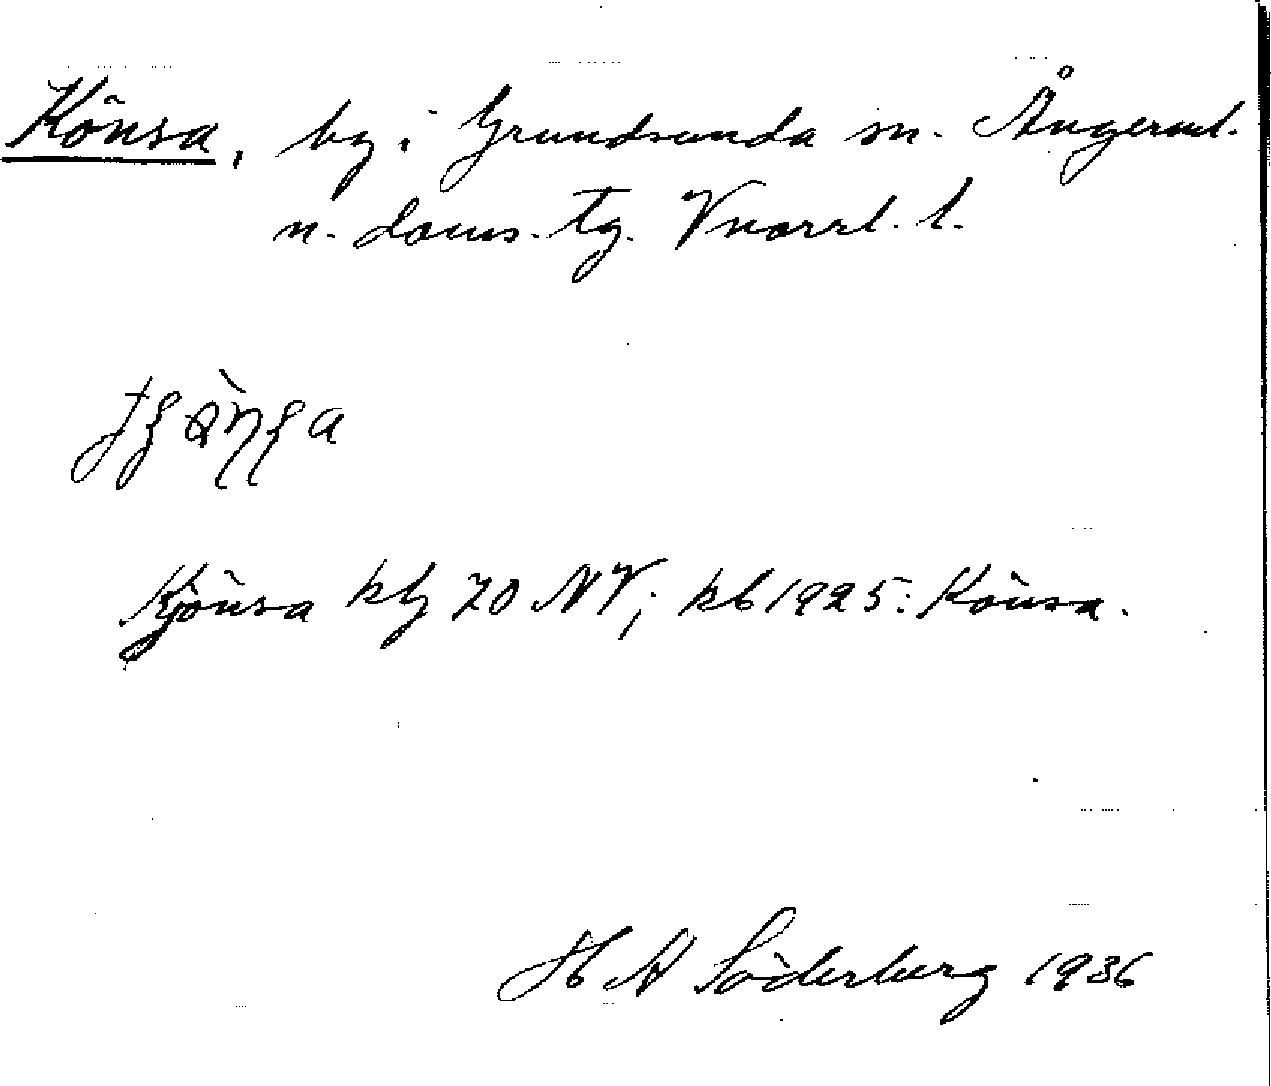 Könsa, by i Grundsunda sn. Ångerml.
n. doms. tg. Vnorrl. l.
Kjönsa kbl 70 NV; kb 1925: Könsa.
H A Söderberg 1936